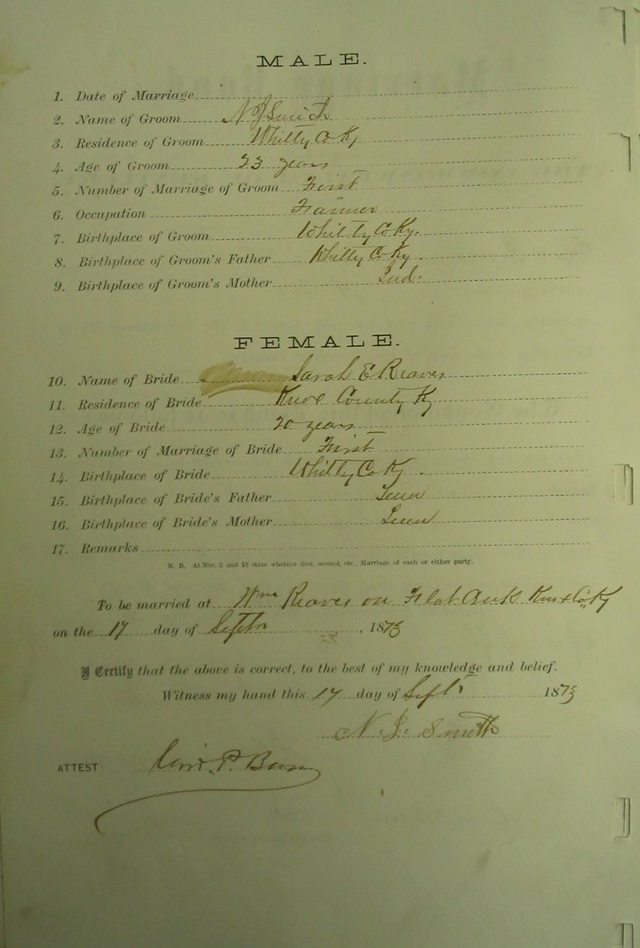 MALE.
1. Date of Marriage
2. Name of Groom N J Smith
3. Residence of Groom Whitly Co Ky
4. Age of Groom 23 years
5. Number of Marriage of Groom First
6. Occupation Farmer
7. Birthplace of Groom Whitly Co Ky.
8. Birthplace of Groom's Father Whitly Co Ky
9. Birthplace of Groom's Mother Ind.
FEMALE.
10. Name of Bride Sarah E Reaves
11. Residence of Bride Knox County Ky
12. Age of Bride 20 years
13. Number of Marriage of Bride First
14. Birthplace of Bride Whitly Co Ky.
15. Birthplace of Bride's Father Tenn
16. Birthplace of Bride's Mother Tenn
17. Remarks
N. B. At Nos. 5 and 13 state whether first, second, etc., Marriage of each or either party.
To be married at Wm Reaves on Flat Knox Co, Ky
on the 17 day of Septr 1875
I Certify that the above is correct, to the best of my knowledge and belief.
Witness my hand this 17 day of Sept 1875
N. J. Smith
ATTEST: P.